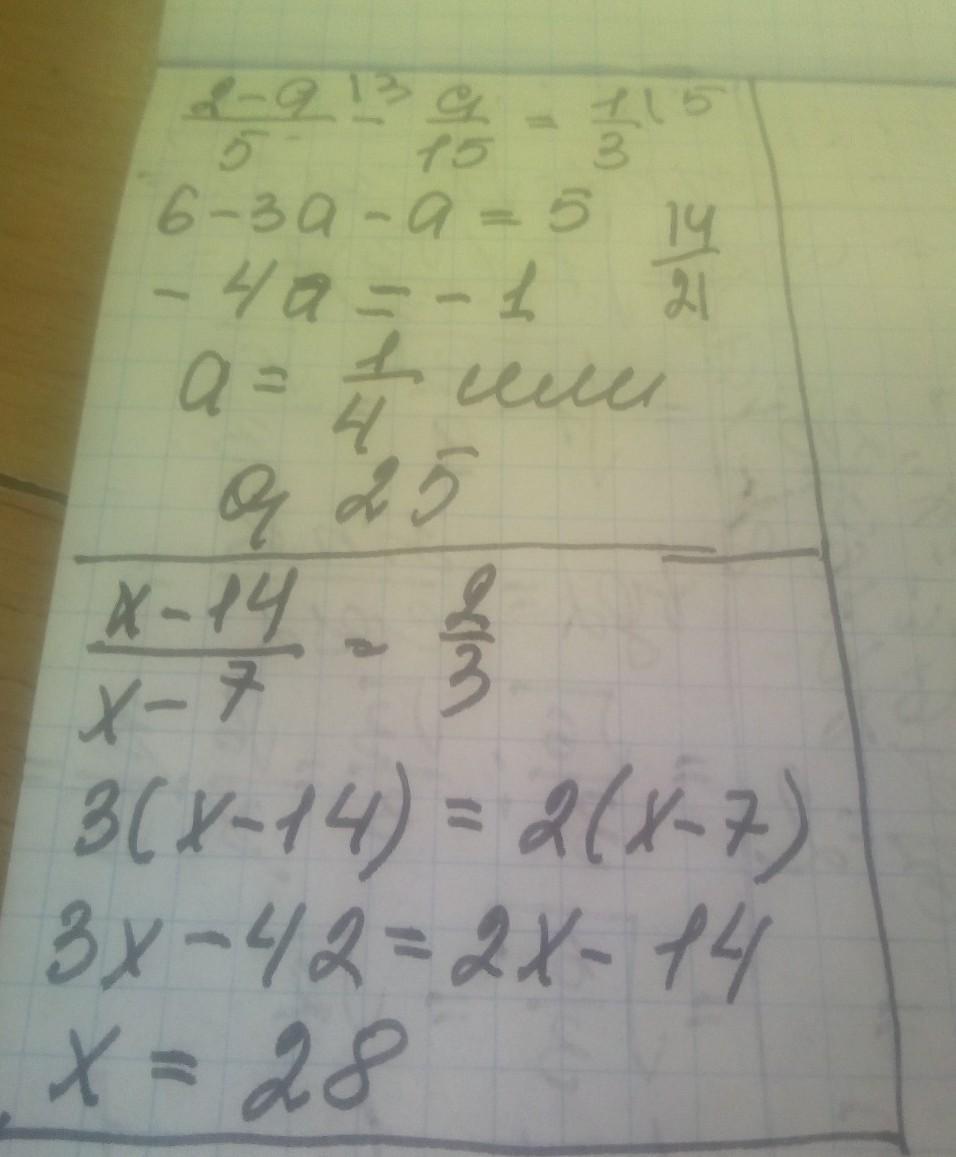 (2-a)/5 |3 - a/15 = 1/3 |5
6-3a-a=5
14/21
-4a=-1
a=1/4 или
0,25
(x-14)/(x-7) = 2/3
3(x-14)=2(x-7)
3x-42=2x-14
x=28